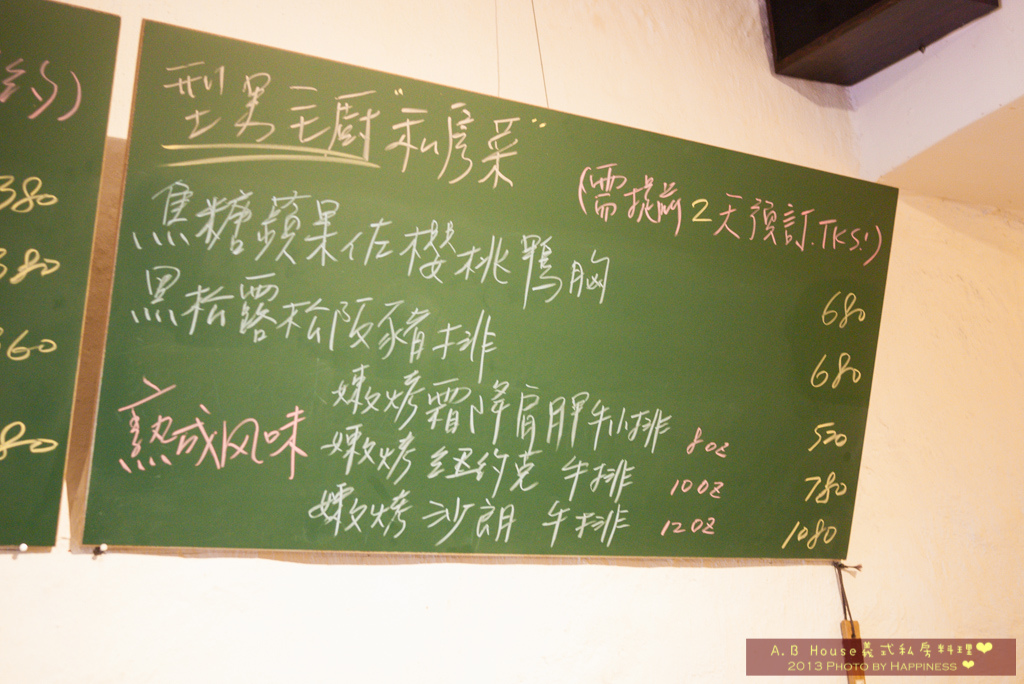 約)
380
380
360
80
型男主廚"私房菜"
(需提前2天預訂.TKS!)
焦糖蘋果佐櫻桃鴨胸 680
黑松露松阪豬排 680
熟成风味
嫩烤霜降肩胛牛小排 8oz 500
嫩烤紐約克牛排 10oz 780
嫩烤沙朗牛排 12oz 1080
A.B House義式私房料理
2013 Photo by Happiness